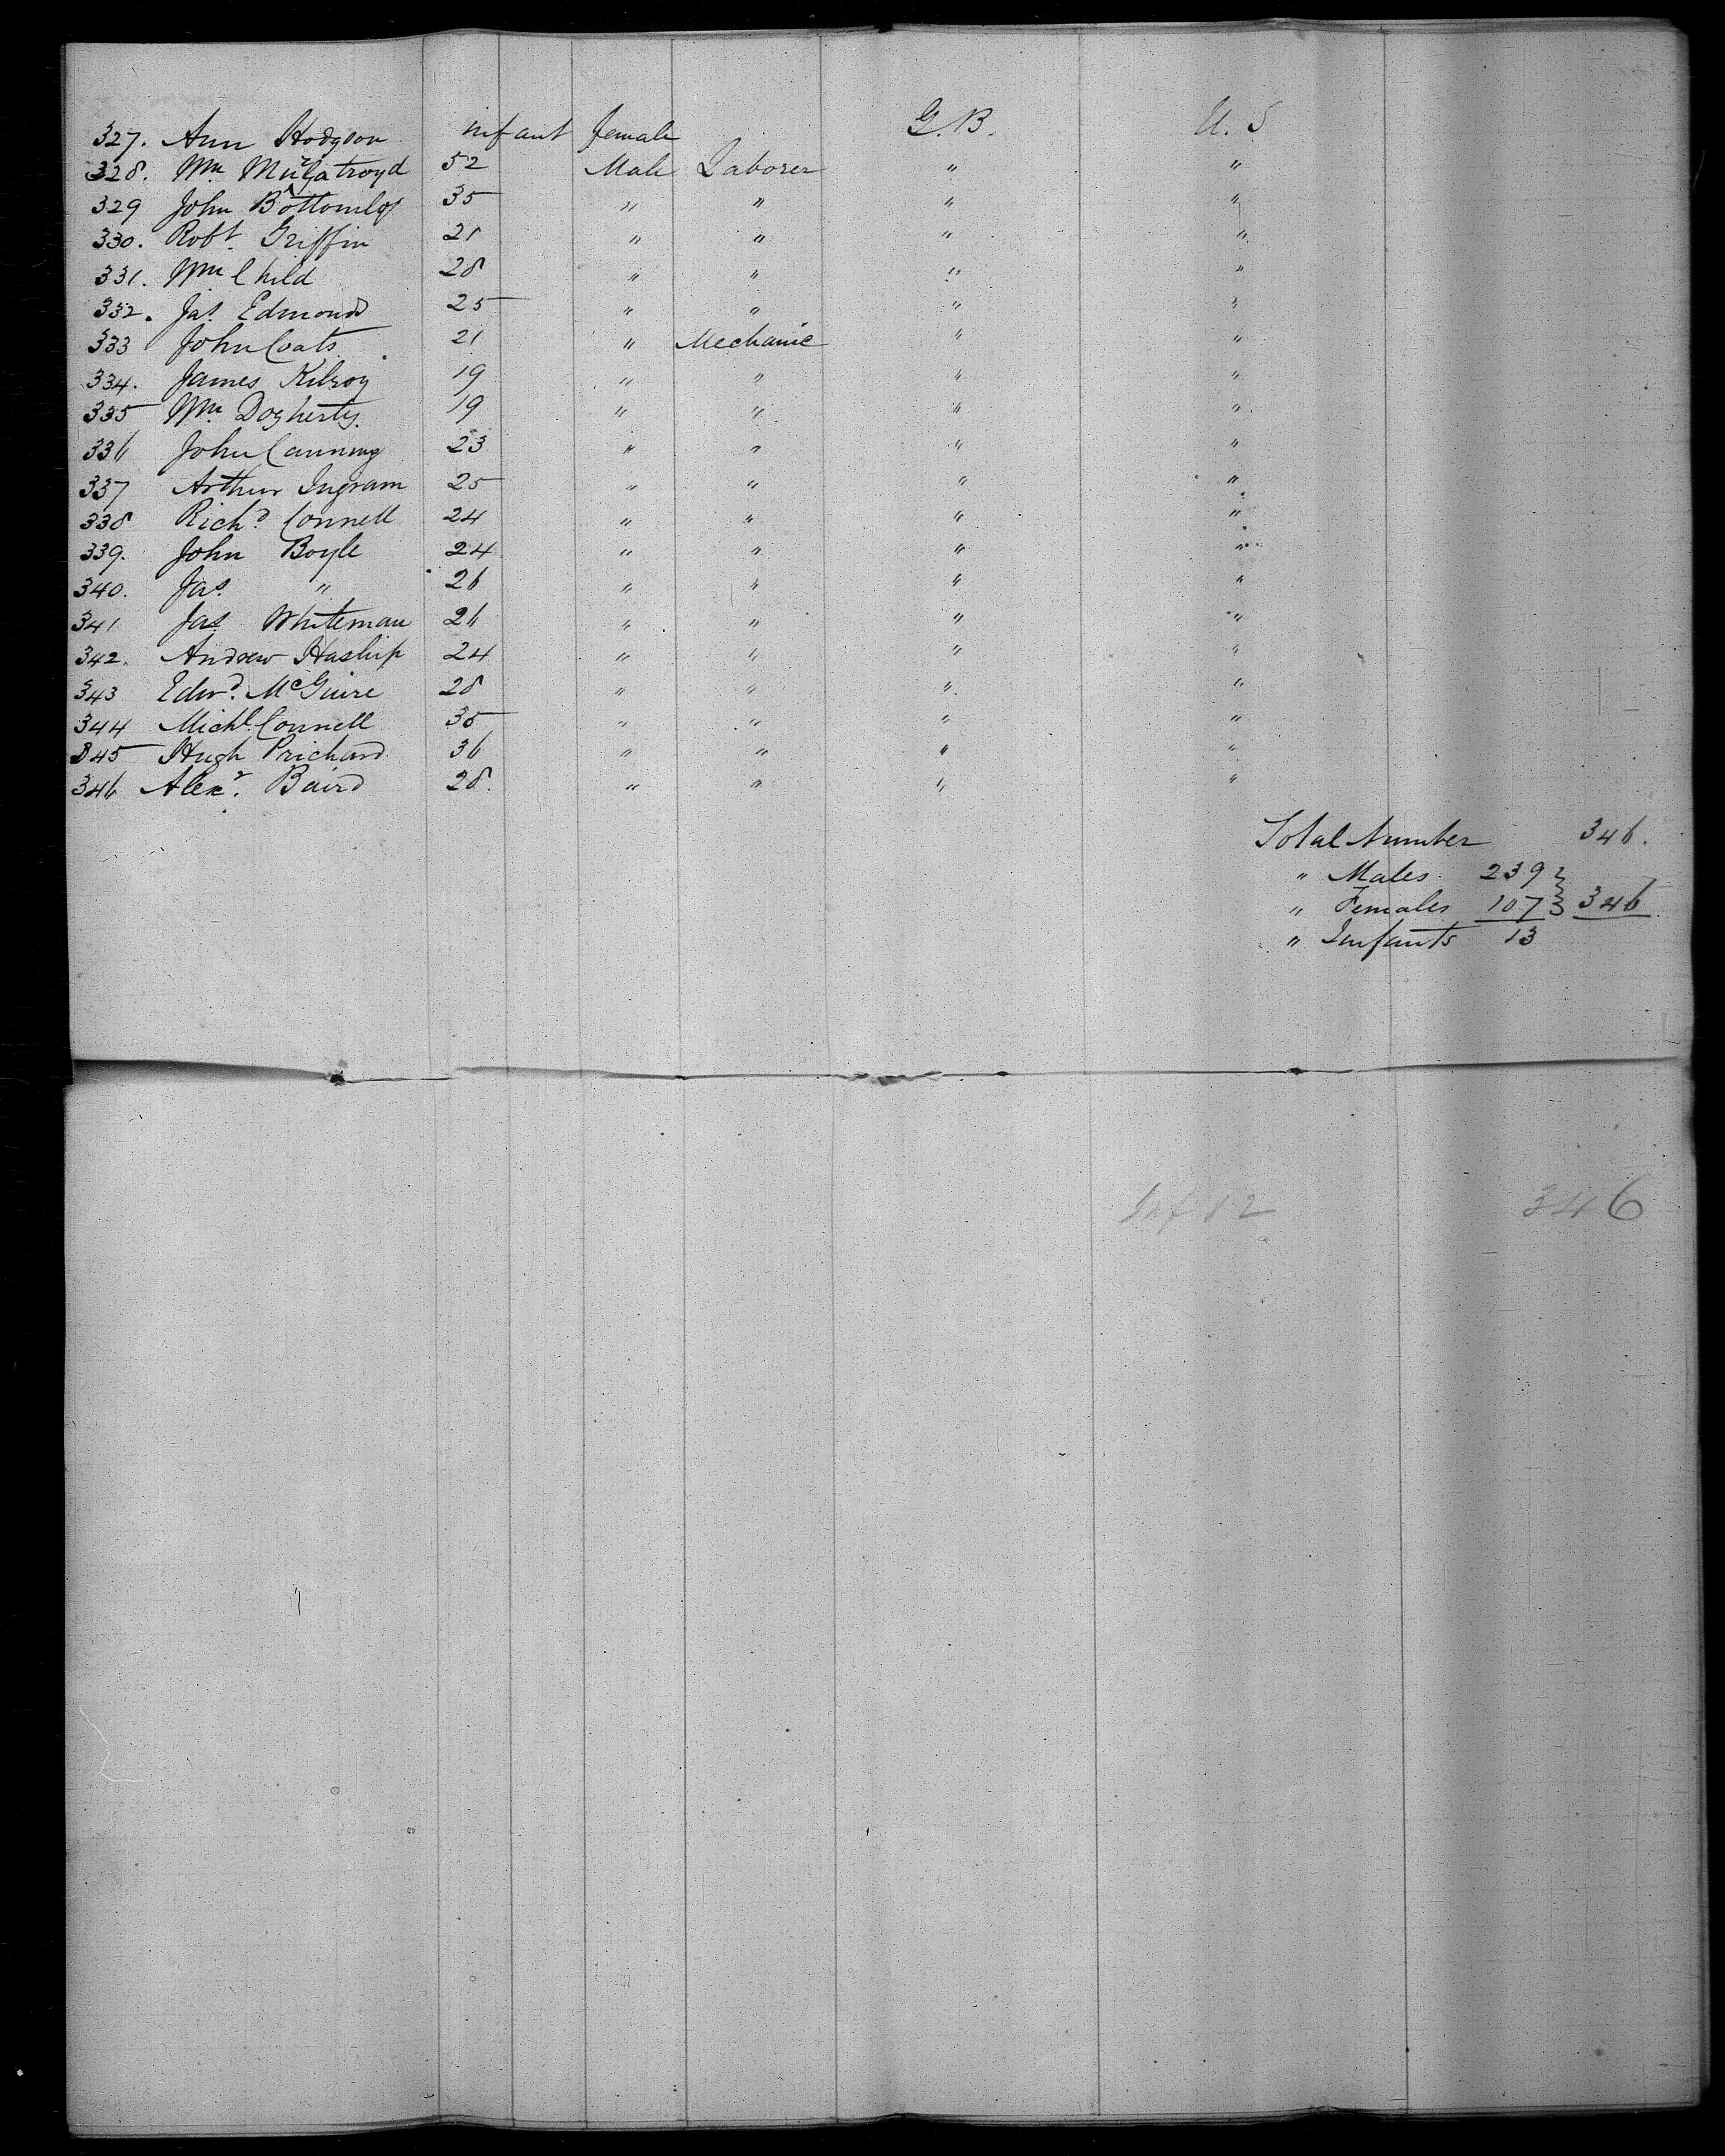 327. Ann Hodgson infant female G. B. U. S
328. Wm Murgatroyd 52 Male Laborer " "
329 John Bottomley 35 " " " "
330. Robt. Griffin 21 " " " "
331. Wm Child 28 " " " "
332. Jas. Edmond 25 " " " "
333 John Coats 21 " Mechanic " "
334. James Kilroy 19 " " " "
335 Wm. Dogherty. 19 " " " "
336 John Canning 23 " " " "
337 Arthur Ingram 25 " " " "
338 Richd. Connell 24 " " " "
339. John Boyle 24 " " " "
340. Jas. " 26 " " " "
341 Jas. Whiteman 26 " " " "
342. Andrew Haslip 24 " " " "
343 Edwd. McGuire 28 " " " "
344 Michl. Connell 35 " " " "
345 Hugh Prichard 36 " " " "
346 Alexr. Baird 28. " " " "
Total Number 346.
" Males 239
" Females 107 346
" Infants 13
Inf 12 346